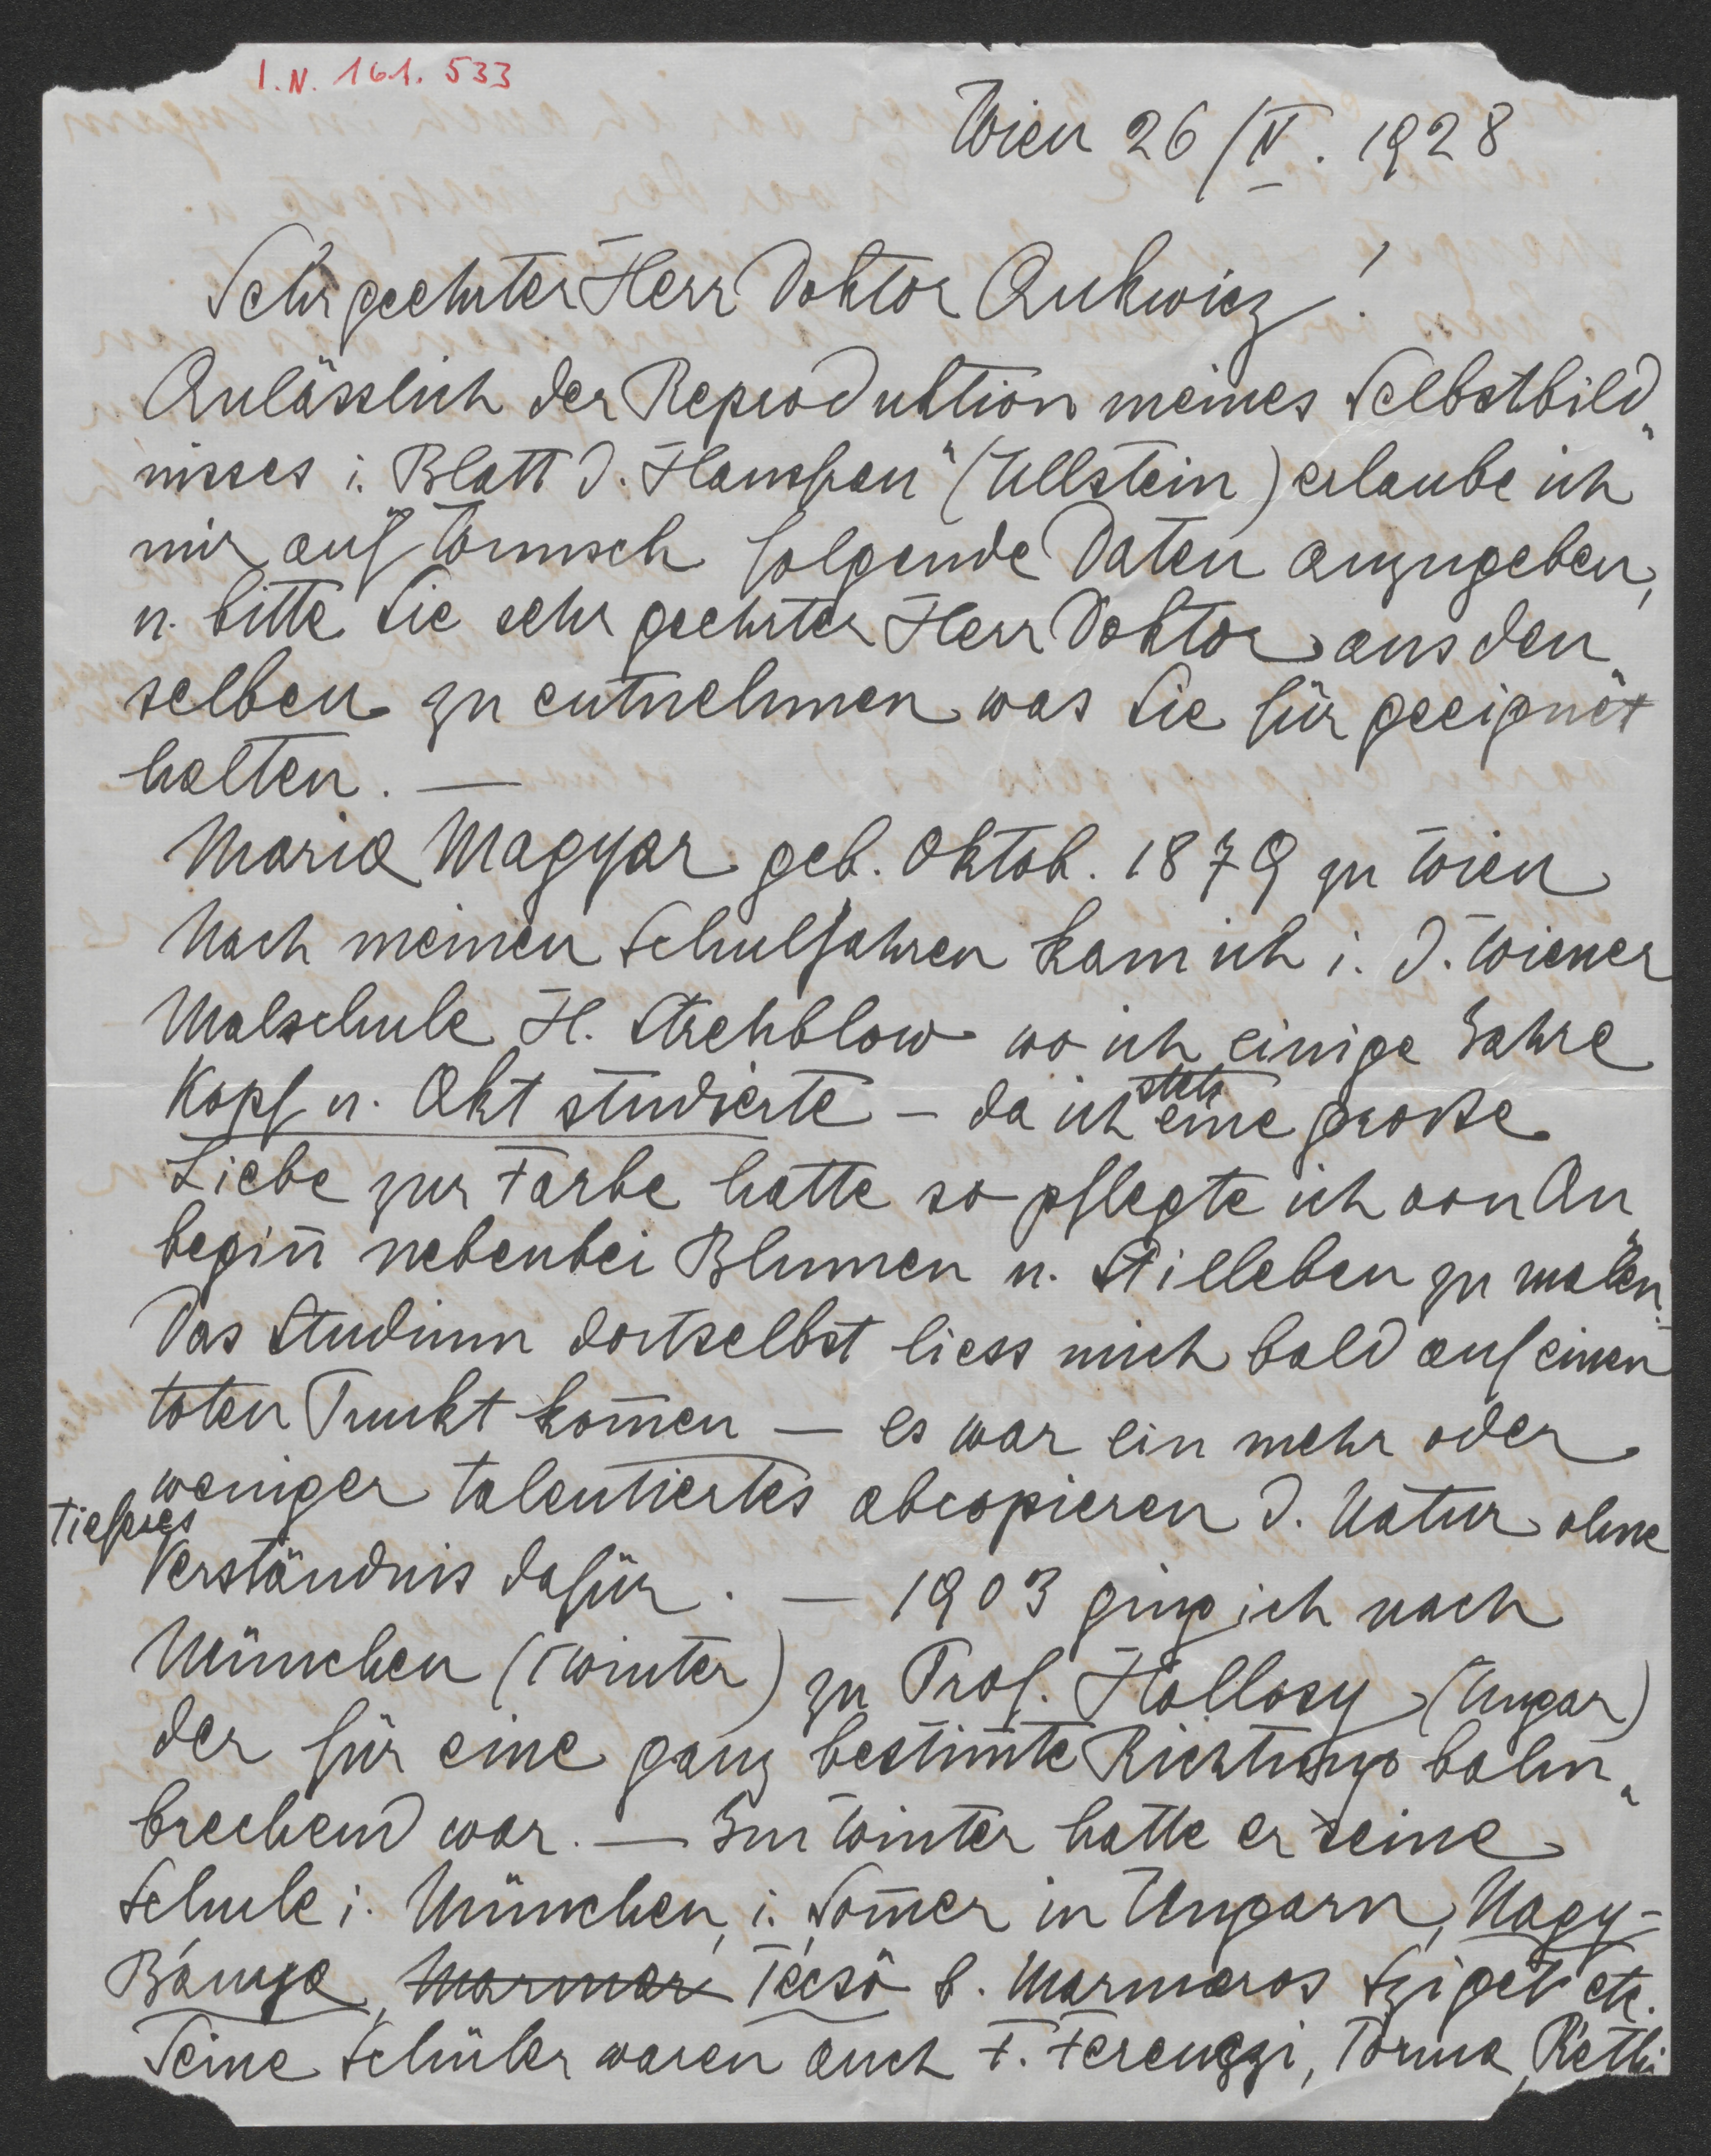 I.N. 161.533
Wien 26/IV. 1928
Sehr geehrter Herr Doktor Ankwicz!
Anlässlich der Reproduktion meines Selbstbild„
nisses i. Blatt d. Hausfrau" (Ullstein) erlaube ich
mir auf Wunsch folgende Daten anzugeben,
u. bitte Sie sehr geehrter Herr Doktor aus den„
selben zu entnehmen was Sie für geeignet
halten. —
Maria Magyar geb. Oktob. 1879 zu Wien
Nach meinen Schuljahren kam ich i. d. Wiener
Malschule H. Strehblow wo ich einige Jahre
Kopf u. Akt studierte – da ich stets eine große
Liebe zur Farbe hatte so pflegte ich von An„
begin̄ nebenbei Blumen u. Stilleben zu malen.
Das Studium dortselbst liess mich bald auf einen
toten Punkt kom̄en — es war ein mehr oder
weniger talentiertes abcopieren d. Natur ohne
tieferes Verständnis dafür. — 1903 ging ich nach
München (Winter) zu Prof. Hollosy (Ungar)
der für eine ganz bestim̄te Richtung bahn„
brechend war. — Im Winter hatte er seine
Schule i. München, i. Som̄er in Ungarn, Nagy-
Bánya, Marmar Técsö b. Marmaros Sziget etc.
Seine Schüler waren auch F. Ferenzzi, Torma, Réthi